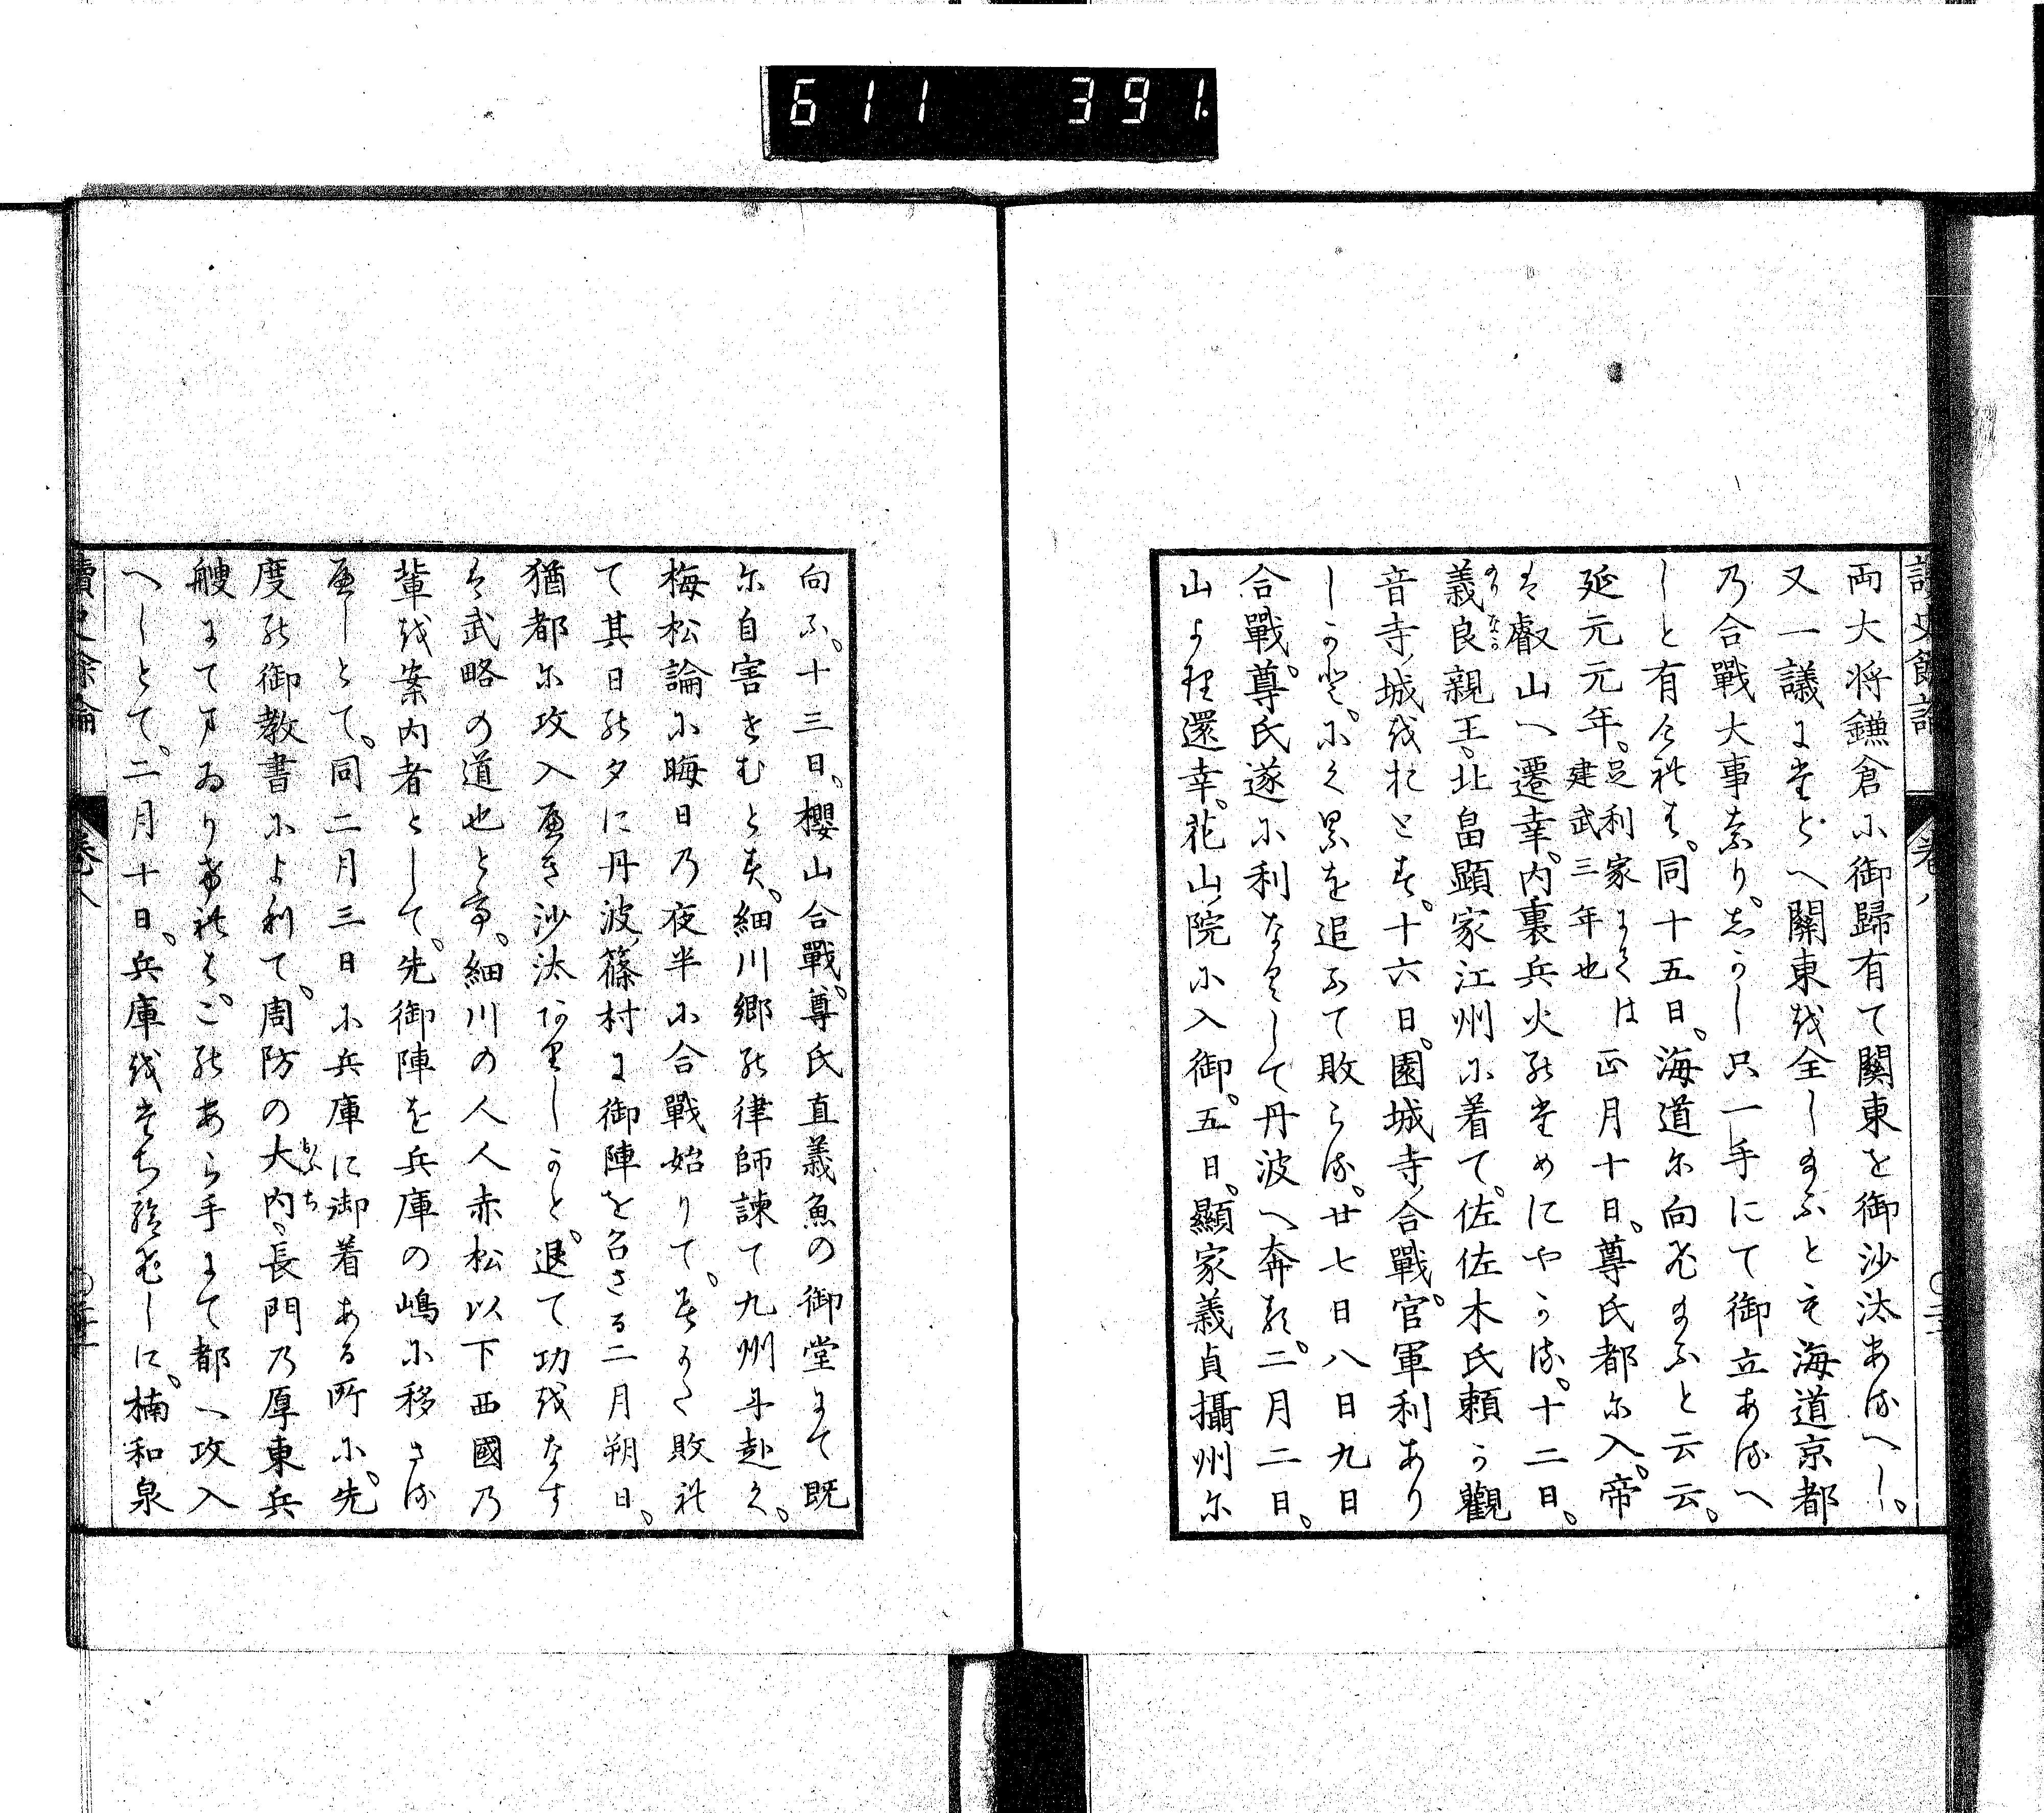 611 391.
讀史餘論 卷八
両大将鎌倉に御歸有て關東を御沙汰あるへし。
又一議にたとへ關東を全し給ふとも海道京都
の合戰大事なり。しかし只一手にて御立あるへ
しと有けれは。同十五日。海道に向ひ給ふと云云。
延元元年。足利家にては建武三年也正月十日。尊氏都に入。帝
は叡山へ遷幸。内裏兵火のためにやかる。十二日。
義良親王。北畠顕家江州に着て。佐佐木氏頼か觀
のりなか
音寺城をおとす。十六日。園城寺合戰。官軍利あり
しかと。にく累を追ふて敗らる。廿七日八日九日
合戰。尊氏遂に利なくして丹波へ奔る。二月二日。
山より還幸。花山院に入御。五日。顯家義貞攝州に
向ふ。十三日。櫻山合戰。尊氏直義魚の御堂にて既
に自害せむとす。細川郷の律師諫て九州に赴く。
梅松論に晦日の夜半に合戰始りて。みかた敗れ
て其日の夕に丹波篠村に御陣を召さる二月朔日。
猶都に攻入へき沙汰ありしかと。退て功をなす
は武略の道也と事。細川の人人赤松以下西國の
輩を案内者として。先御陣を兵庫の嶋に移さる
へしとて。同二月三日に兵庫に御着ある所に。先
度の御教書によりて。周防の大内。長門の厚東兵
おふち
艘にてまゐりけれは。このあら手にて都へ攻入
へしとて。二月十日。兵庫をたち給ひしに。楠和泉
讀史餘論 卷八